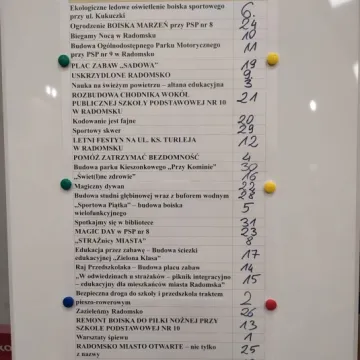 Ekologiczne ledowe oświetlenie boiska sportowego
przy ul. Kukuczki 6.
Ogrodzenie BOISKA MARZEŃ przy PSP nr 8 24
Biegamy Nocą w Radomsku 10
Budowa Ogólnodostępnego Parku Motorycznego
przy PSP nr 9 w Radomsku 11
PLAC ZABAW „SADOWA” 19
USKRZYDLONE RADOMSKO 9
Nauka na świeżym powietrzu – altana edukacyjna 3
ROZBUDOWA CHODNIKA WOKÓŁ
PUBLICZNEJ SZKOŁY PODSTAWOWEJ NR 10 21
W RADOMSKU
Kodowanie jest fajne 20
Sportowy skwer 29
LETNI FESTYN NA UL. KS. TURLEJA
W RADOMSKU 12
POMÓŻ ZATRZYMAĆ BEZDOMNOŚĆ 4
Budowa parkingu Kieszonkowego „Przy Kominie” 30
„Świet(l)ne zdrowie” 16
Magiczny dywan 22
Budowa studni głębinowej wraz z buforem wodnym 28
„Sportowa Piątka” – budowa boiska
wielofunkcyjnego 5
Spotkajmy się w bibliotece 31
MAGIC DAY w PSP nr 8 23
„STRAŻnicy MIASTA” 8
Edukacja przez zabawę – Budowa ścieżki
edukacyjnej „Zielona Klasa” 17
Raj Przedszkolaka – Budowa placu zabaw 14
„W odwiedzinach u strażaków – piknik integracyjno
– edukacyjny dla mieszkańców miasta Radomska” 15
Bezpieczna droga do szkoły i przedszkola traktem
pieszo-rowerowym 2
Zazieleńmy Radomsko 26
REMONT BOISKA DO PIŁKI NOŻNEJ PRZY
SZKOLE PODSTAWOWEJ NR 10 13
Warsztaty śpiewu 1
RADOMSKO MIASTO OTWARTE – nie tylko
z nazwy 25